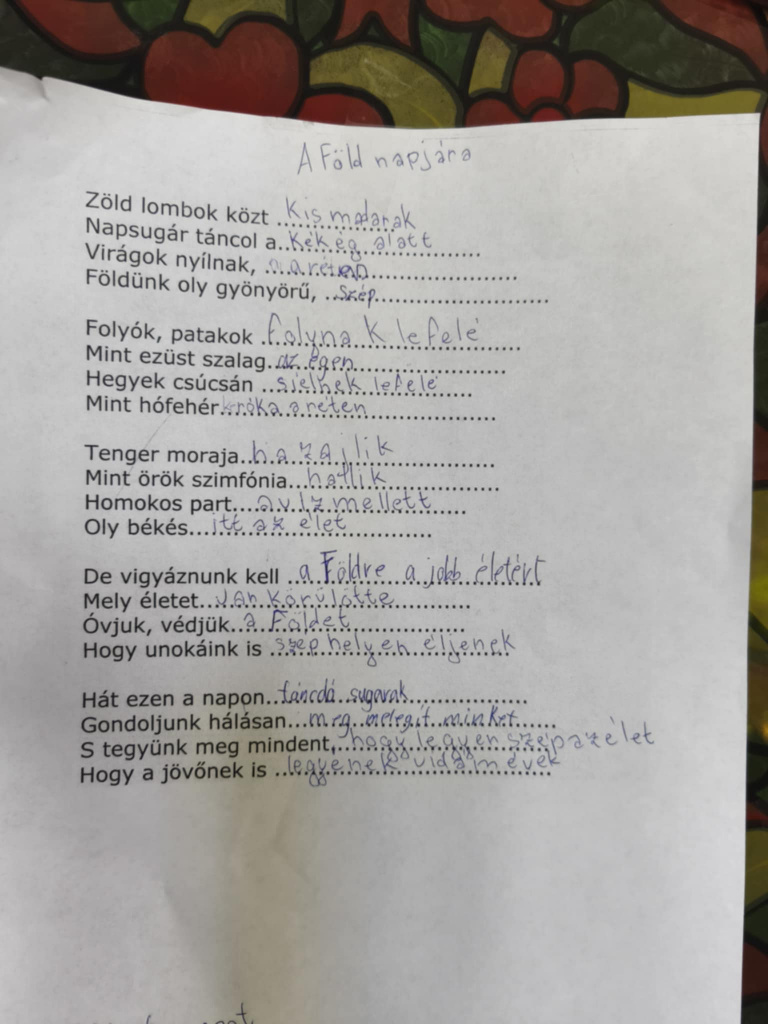 A Föld napjára
Zöld lombok közt Kis madarak
Napsugár táncol a kék ég alatt
Virágok nyílnak, a réten
Földünk oly gyönyörű, szép
Folyók, patakok folynak lefelé
Mint ezüst szalag az égen
Hegyek csúcsán sielnek lefelé
Mint hófehér róka a réten
Tenger moraja hazajlik
Mint örök szimfónia hallik
Homokos part a víz mellett
Oly békés itt az élet
De vigyáznunk kell a Földre a jobb életért
Mely életet van körülötte
Óvjuk, védjük a Földet
Hogy unokáink is szép helyen éljenek
Hát ezen a napon táncdá sugarak
Gondoljunk hálásan meg melegít minket
S tegyünk meg mindent, hogy legyen szép az élet
Hogy a jövőnek is legyenek vidám évek